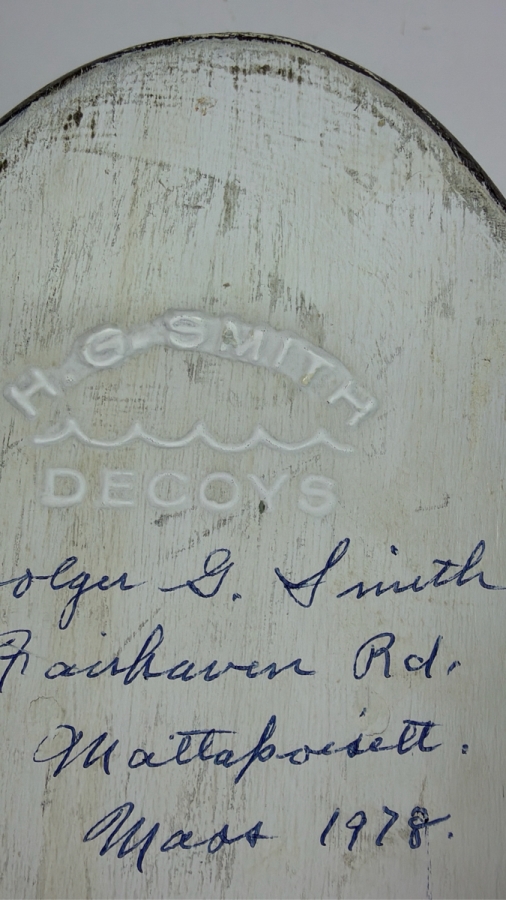 H. G. SMITH
DECOYS
olger G. Smith
Fairhaven Rd.
Mattapoisett.
Mass 1978.